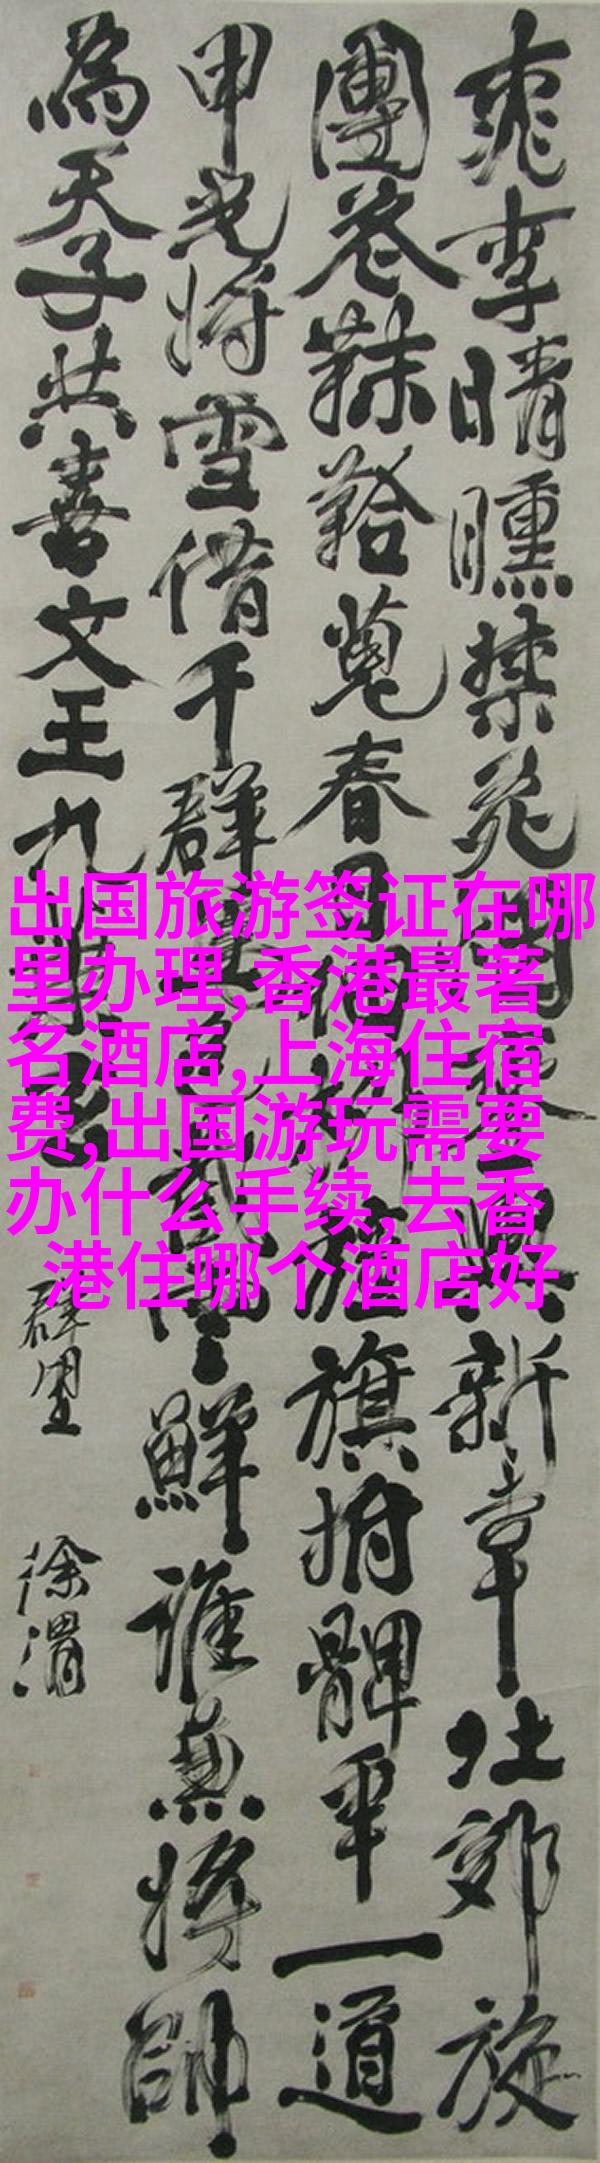 李晴曛禁苑新章壯郊旋
團花鞈蒐春日旌旗拊髀年一道
甲光將雪借千群鮮誰兼將帥
為天子共喜文王九
徐渭
出国旅游签证在哪
里办理,香港最著
名酒店,上海住宿
费,出国游玩需要
办什么手续,去香
港住哪个酒店好